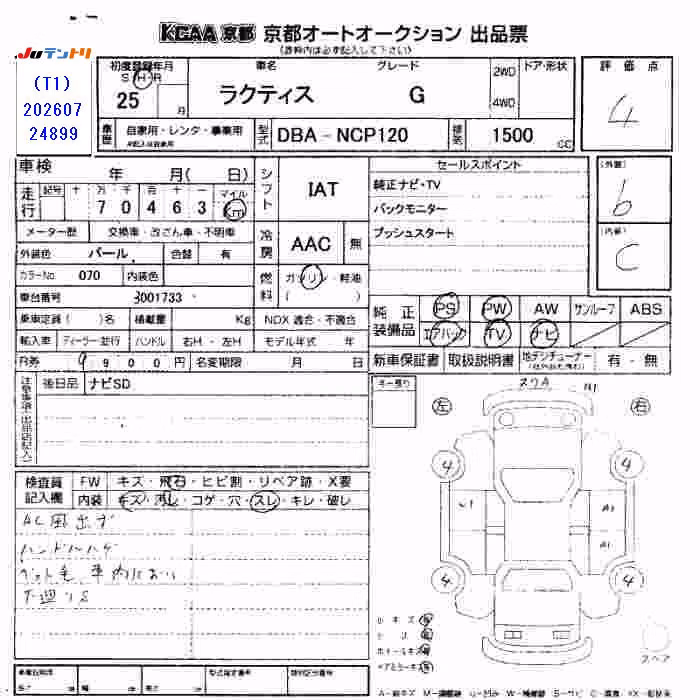 KCAA 京都 京都オートオークション 出品票
(太枠内は必ず記入して下さい)
Juテントリ
(T1)
202607
24899
初度登録年月 車名 グレード 2WD ドア・形状 評価点
S H R
25 月 ラクティス G 4WD 4
車歴 自家用・レンタ・事業用 型式 DBA-NCP120 排気 1500 CC
車検 年 月( 日) シフト IAT セールスポイント (外装)
走行 記号 十 万 千 百 十 一 マイル 純正ナビ・TV b
7 0 4 6 3 Km バックモニター
メーター歴 交換車・改ざん車・不明車 冷房 AAC 無 プッシュスタート (内装)
外装色 パール 色替 有 C
カラーNo. 070 内装色 燃料 ガソリン・軽油
車台番号 3001733 ( )
乗車定員( )名 積載量 Kg NOX 適合・不適合 純正装備品 PS PW AW サンルーフ ABS
輸入車 ディーラー・並行 ハンドル 右H・左H モデル年式 年 エアバック TV ナビ
R券 9900円 名変期限 月 日 新車保証書 取扱説明書 地デジチューナー 有・無
注意事項(出品店記入) 後日品 ナビSD
左 右
検査員記入欄 FW キズ・飛石・ヒビ割・リペア跡・X要
内装 キズ・汚レ・コゲ・穴・スレ・キレ・破レ
AC風出ず
ハンドルハゲ
ペット毛 車内におい
下廻りS
A1
4 4
A1
A1
4 4
スペア